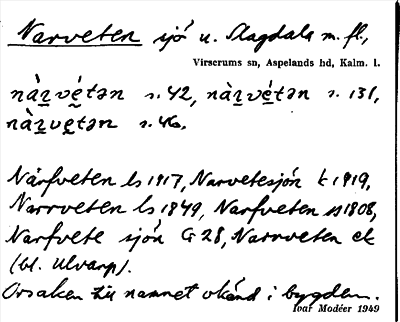 Narveten sjö u. Slagdala m. fl.,
Virserums sn, Aspelands hd, Kalm. l.
nàṟvé̱tən s. 42, nàṟvé̱tən s. 131,
nàṟve̱tən s. 46.
Närfveten ls 1917, Narvetesjön k 1919,
Narrveten ls 1849, Narfveten 1808,
Narfvete sjön G 28, Narrveten ek
(bl. Ulvarp).
Orsaken till namnet okänd i bygden.
Ivar Modéer 1949